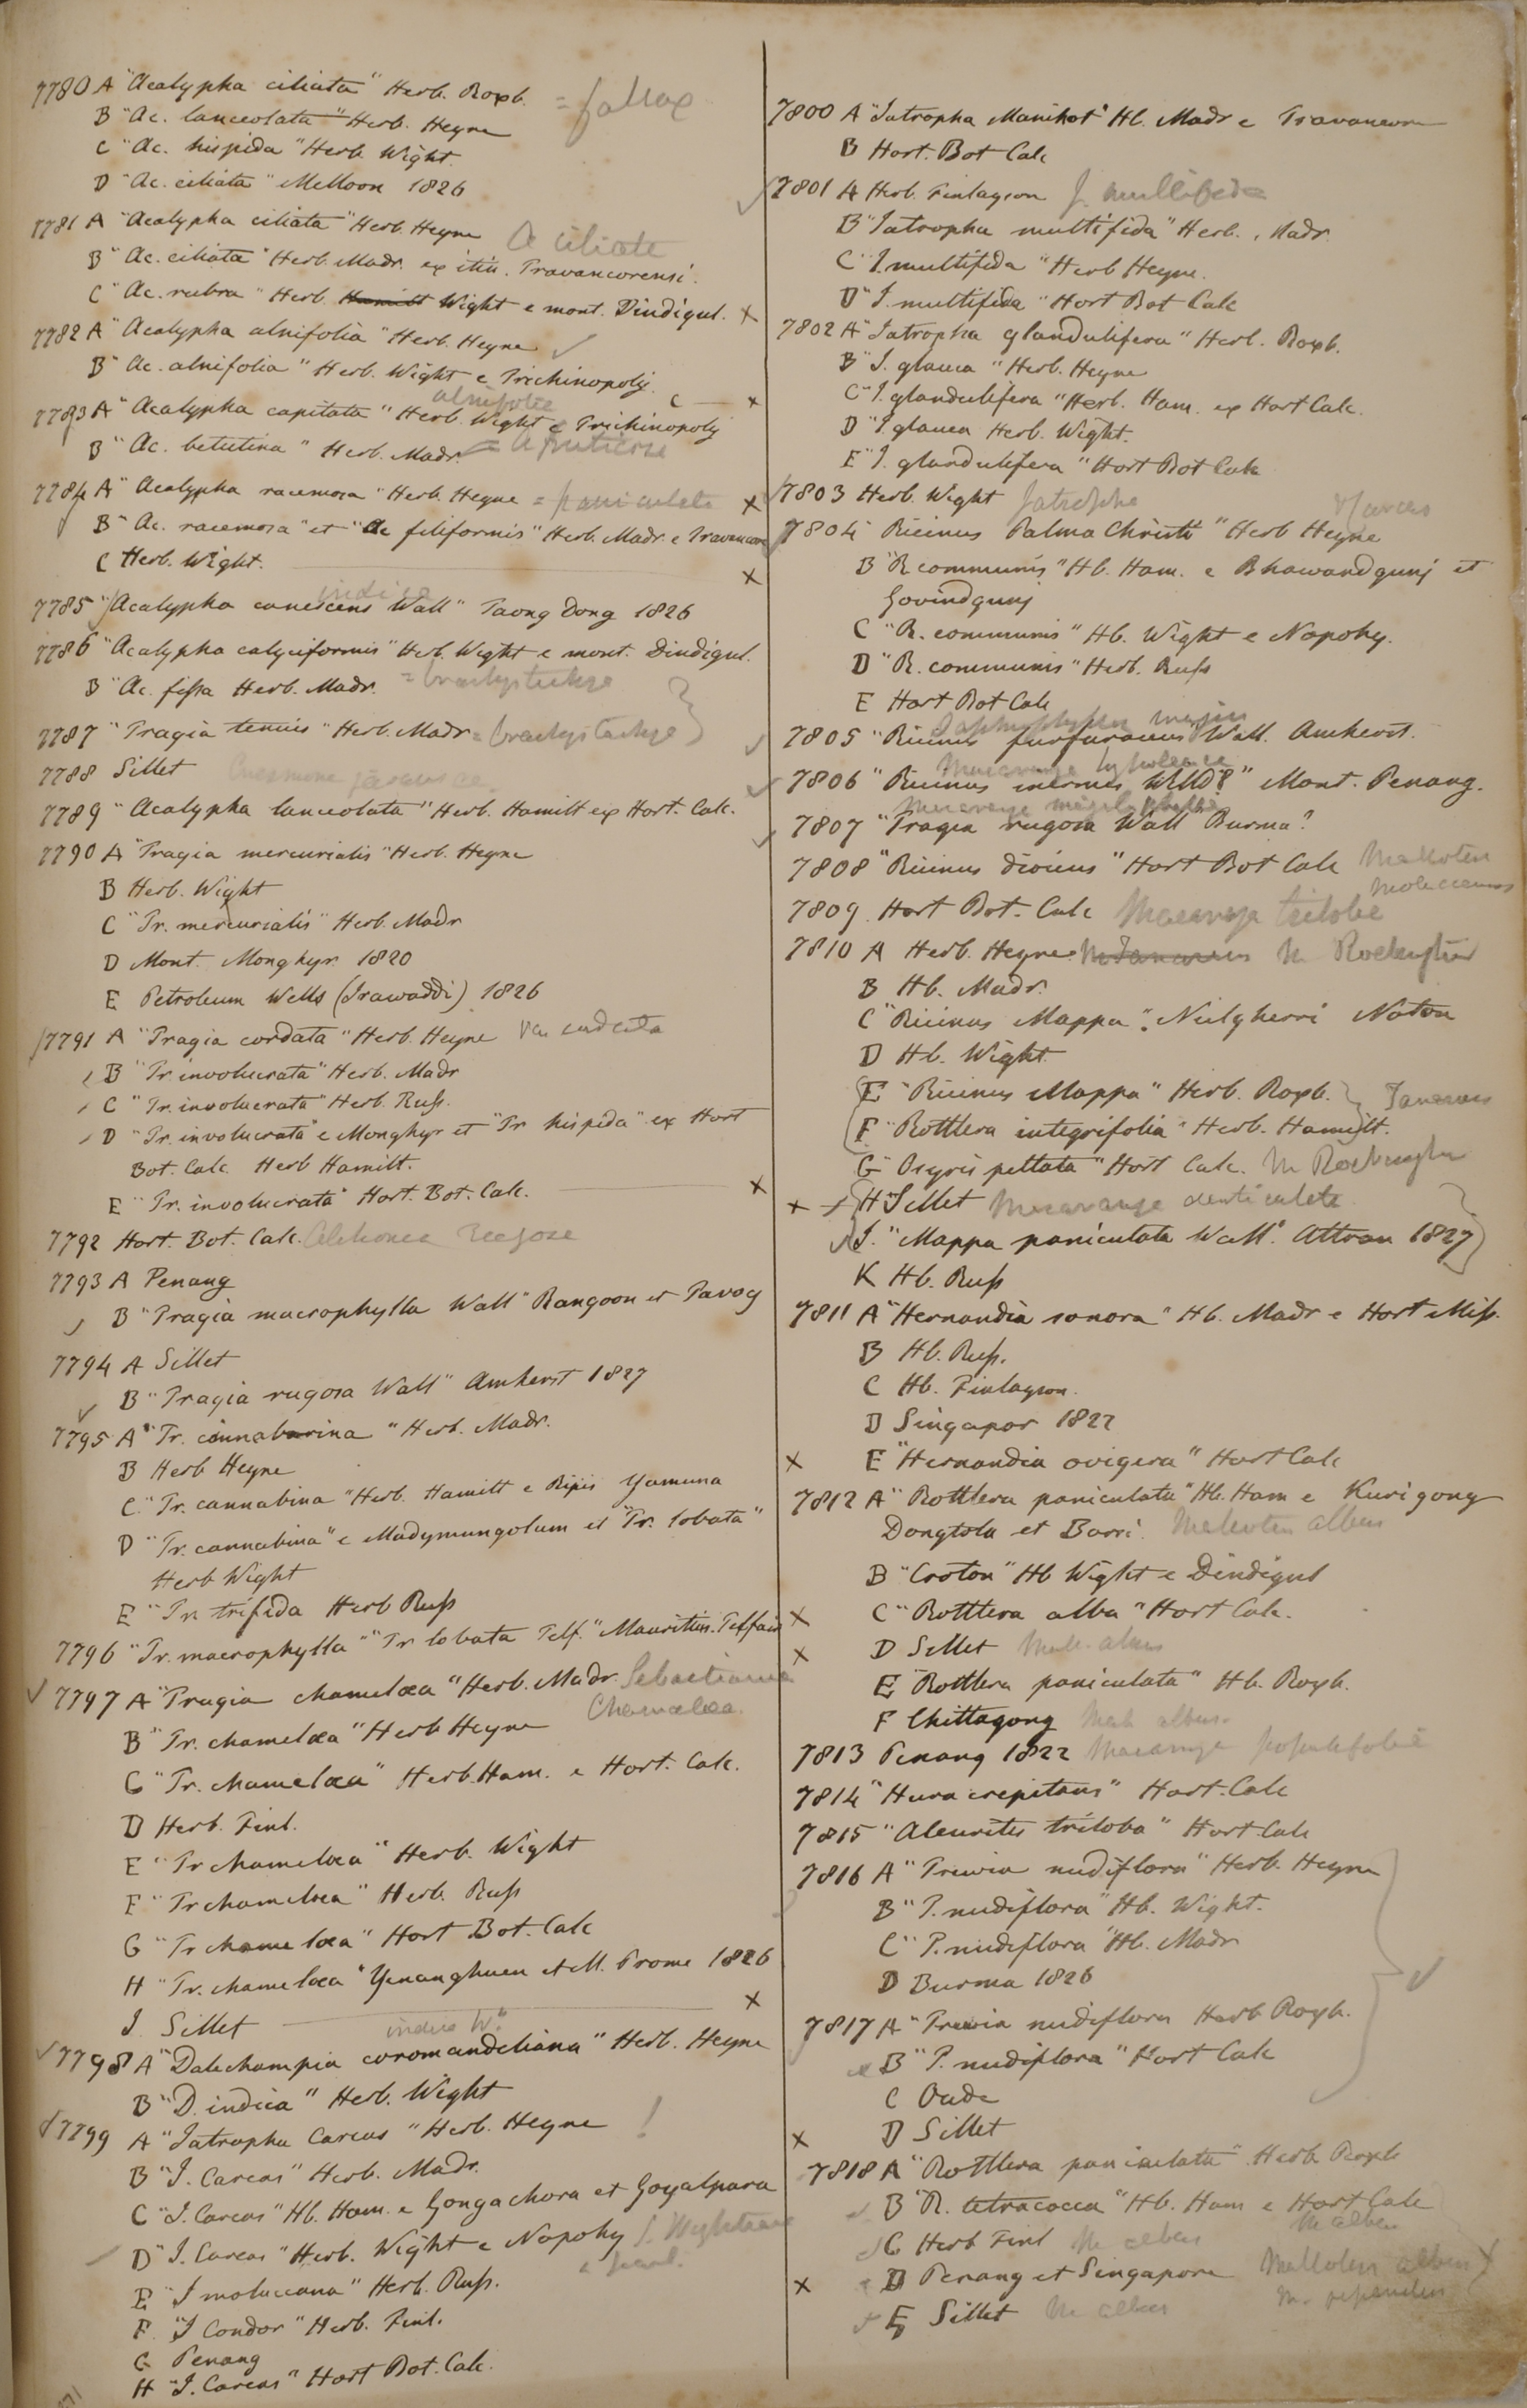 7780 A "Acalypha ciliata" Herb. Roxb. = fallax
B "Ac. lanceolata" Herb. Heyne
C "Ac. hispida" Herb. Wight
D "Ac. ciliata" Melloon 1826
7781 A "Acalypha ciliata" Herb. Heyne A ciliate
B "Ac. ciliata" Herb. Madr. ex itin. Travancorensi.
C "Ac. rubra" Herb Hamilt Wight e mont. Dindigul. x
7782 A "Acalypha alnifolia" Herb. Heyne ✓
B "Ac. alnifolia" Herb. Wight e Trichinopoly. C — x
alnifolie
7783 A "Acalypha capitata" Herb. Wight e Trichinopoly
B "Ac. betutina" Herb. Madr. = A fruticose
7784 A "Acalypha racemosa" Herb. Heyne = paniculata x
B "Ac. racemosa" et "Ac filiformis" Herb. Madr. e Travancore
C Herb. Wight. x
indica
7785 "Acalypha canescens Wall" Taong Dong 1826
7786 "Acalypha calyciformis" Herb. Wight e mont. Dindigul.
B "Ac. fissa Herb. Madr. = brachystachya
7787 "Tragia tenuis" Herb. Madr = brachystachya
7788 Sillet Cnesmone javanica
7789 "Acalypha lanceolata" Herb. Hamilt ex Hort. Calc.
7790 A "Tragia mercurialis" Herb. Heyne
B Herb. Wight
C "Tr. mercurialis" Herb. Madr
D Mont. Monghyr. 1820
E Petroleum Wells (Irawaddi) 1826
7791 A "Tragia cordata" Herb. Heyne Var cordata
B "Tr. involucrata" Herb. Madr
C "Tr. involucrata" Herb. Russ.
D "Tr. involucrata" e Monghyr et "Tr hispida" ex Hort
Bot. Calc. Herb Hamilt.
E "Tr. involucrata" Hort. Bot. Calc. x
7792 Hort. Bot. Calc. Alchornea Rugosa
7793 A Penang
B "Tragia macrophylla Wall" Rangoon et Tavoy
7794 A Sillet
B "Tragia rugosa Wall" Amherst 1827
7795 A "Tr. cannabarina" Herb. Madr.
B Herb Heyne
C "Tr. cannabina" Herb. Hamilt e Ripis Yamuna
D "Tr. cannabina" e Madymungolum et "Tr. lobata"
Herb Wight
E "Tr. trifida Herb Russ
7796 "Tr. macrophylla" "Tr lobata Telf." Mauritius. Telfair
7797 A "Tragia chamelæa" Herb. Madr. Sebastiania
Chamelæa.
B "Tr. chamelæa" Herb Heyne
C "Tr. chamelæa" Herb. Ham. e Hort. Calc.
D Herb. Finl.
E "Tr chamelæa" Herb. Wight
F "Tr chamelæa" Herb. Russ
G "Tr chamelæa" Hort Bot. Calc
H "Tr. chamelæa" Yenanghuen et M. Prome 1826
I Sillet x
indica W."
7798 A "Dalechampia coromandeliana" Herb. Heyne
B "D. indica" Herb. Wight
7799 A "Jatropha Curcas" Herb. Heyne !
B "J. Curcas" Herb. Madr.
C "J. Curcas" Hb. Ham. e Gongachora et Goyalpara
D "J. Curcas" Herb. Wight e Nopoky J. Wightiana
E "J moluccana" Herb. Russ.
F "J Condor" Herb. Finl.
G Penang
H "J. Curcas" Hort Bot. Calc.
7800 A "Jatropha Manihot" Hb. Madr e Travancore
B Hort. Bot Calc
7801 A Herb. Finlayson J. multifida
B "Jatropha multifida" Herb. Madr.
C "J. multifida" Herb Heyne.
D "J. multifida" Hort Bot Calc
7802 A "Jatropha glandulifera" Herb. Roxb.
B "J. glauca" Herb. Heyne
C "J. glandulifera" Herb. Ham. ex Hort Calc.
D "J. glauca Herb. Wight.
E "J. glandulifera" Hort Bot Calc
7803 Herb. Wight Jatropha
7804 Ricinus Palma Christi" Herb Heyne
B "R communis" Hb. Ham. e Bhawandgunj et
Govindgunj
C "R. communis" Hb. Wight e Nopoky.
D "R. communis" Herb. Russ
E Hort Bot Calc
7805 "Ricinus furfuraceus Wall. Amherst.
Macaranga hypoleuca
7806 "Ricinus inermis Willd?" Mont. Penang.
Macaranga megalophylla
7807 "Tragia rugosa Wall" Burma?
7808 "Ricinus dioicus" Hort Bot Calc Mallotus
moluccanus
7809 Hort Bot. Calc Macaranga triloba
7810 A Herb. Heyne M Tanarius M Roxburghii
B Hb. Madr.
C "Ricinus Mappa". Neilgherri Noton
D Hb. Wight
E "Ricinus Mappa" Herb. Roxb. Tanarius
F "Rottlera integrifolia" Herb. Hamilt.
G "Osyris peltata" Hort Calc. M Roxburghii
x H Sillet Macaranga denticulata
I. "Mappa paniculata Wall". Attran 1827
K Hb. Russ
7811 A "Hernandia sonora" Hb. Madr e Hort Miss.
B Hb. Russ.
C Hb. Finlayson.
D Singapor 1822
x E "Hernandia ovigera" Hort Calc
7812 A "Rottlera paniculata" Hb. Ham e Kurigong
Dongtola et Barri. Mallotus albus
B "Croton" Hb Wight e Dindigul
x C "Rottlera alba" Hort Calc.
x D Sillet Mall. albus
E "Rottlera paniculata" Hb. Roxb.
F Chittagong Mall albus.
7813 Penang 1822 Macaranga populifolia
7814 "Hura crepitans" Hort. Calc
7815 "Aleurites triloba" Hort Calc
7816 A "Trewia nudiflora" Herb. Heyne
B "T. nudiflora" Hb. Wight.
C "T. nudiflora" Hb. Madr
D Burma 1826 ✓
7817 A "Trewia nudiflora Herb Roxb.
B "T. nudiflora" Hort Calc
C Oude
x D Sillet
7818 A "Rottlera paniculata" Herb Roxb
B "R. tetracocca" Hb. Ham e Hort Calc
M albus
C Herb Finl M albus
x D Penang et Singapore Mallotus albus
M. repandus
E Sillet M albus